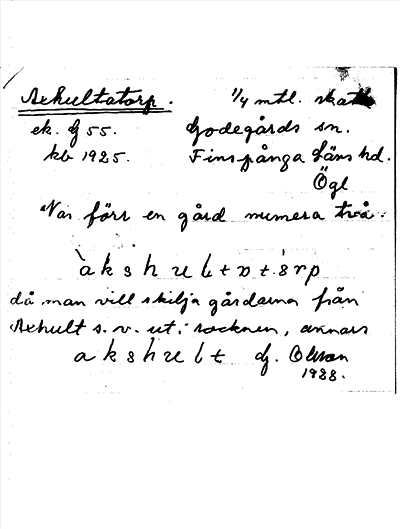 Axhultatorp. 1/4 mtl. skatte
ek. G 55. Godegårds sn.
kb 1925. Finspånga läns hd.
Ögl
Var förr en gård numera två.
àkshultvt.srp
då man vill skilja gårdarna från
Axhult s. v. ut i socknen, annars
akshult G. Olsson
1938.